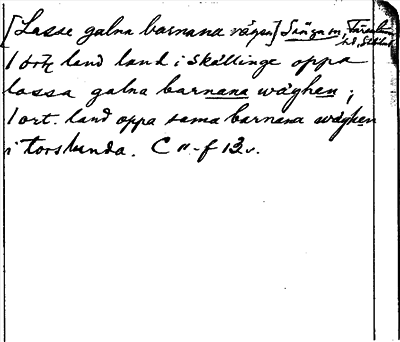 [Lasse galna barnana vägen] Sånga sn,
1 ortz land land i Skällinge oppa
lassa galna barnana wäghen ;
1 ort. land oppa sama barnana wäghen
i torslunda. C 11 f 13 v.